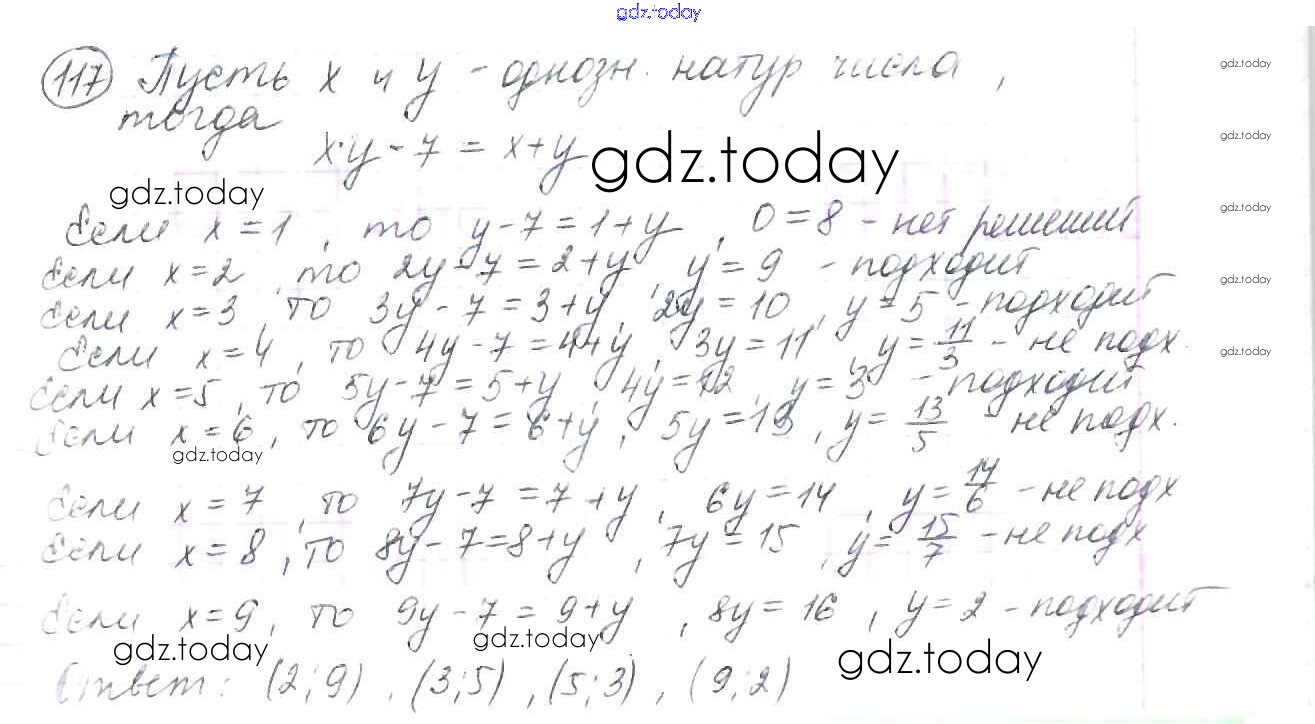 gdz.today
117 Пусть x и y - однозн. натур числа,
gdz.today
тогда
x·y - 7 = x+y
gdz.today
gdz.today
gdz.today
Если x = 1, то y - 7 = 1 + y, 0 = 8 - нет решений
gdz.today
Если x = 2, то 2y - 7 = 2 + y, y = 9 - подходит
gdz.today
Если x = 3, то 3y - 7 = 3 + y, 2y = 10, y = 5 - подходит
Если x = 4, то 4y - 7 = 4 + y, 3y = 11, y = 11/3 - не подх.
gdz.today
Если x = 5, то 5y - 7 = 5 + y, 4y = 12, y = 3 - подходит
Если x = 6, то 6y - 7 = 6 + y, 5y = 13, y = 13/5 - не подх.
gdz.today
Если x = 7, то 7y - 7 = 7 + y, 6y = 14, y = 14/6 - не подх
Если x = 8, то 8y - 7 = 8 + y, 7y = 15, y = 15/7 - не подх
Если x = 9, то 9y - 7 = 9 + y, 8y = 16, y = 2 - подходит
gdz.today
gdz.today
gdz.today
Ответ: (2;9), (3;5), (5;3), (9;2)